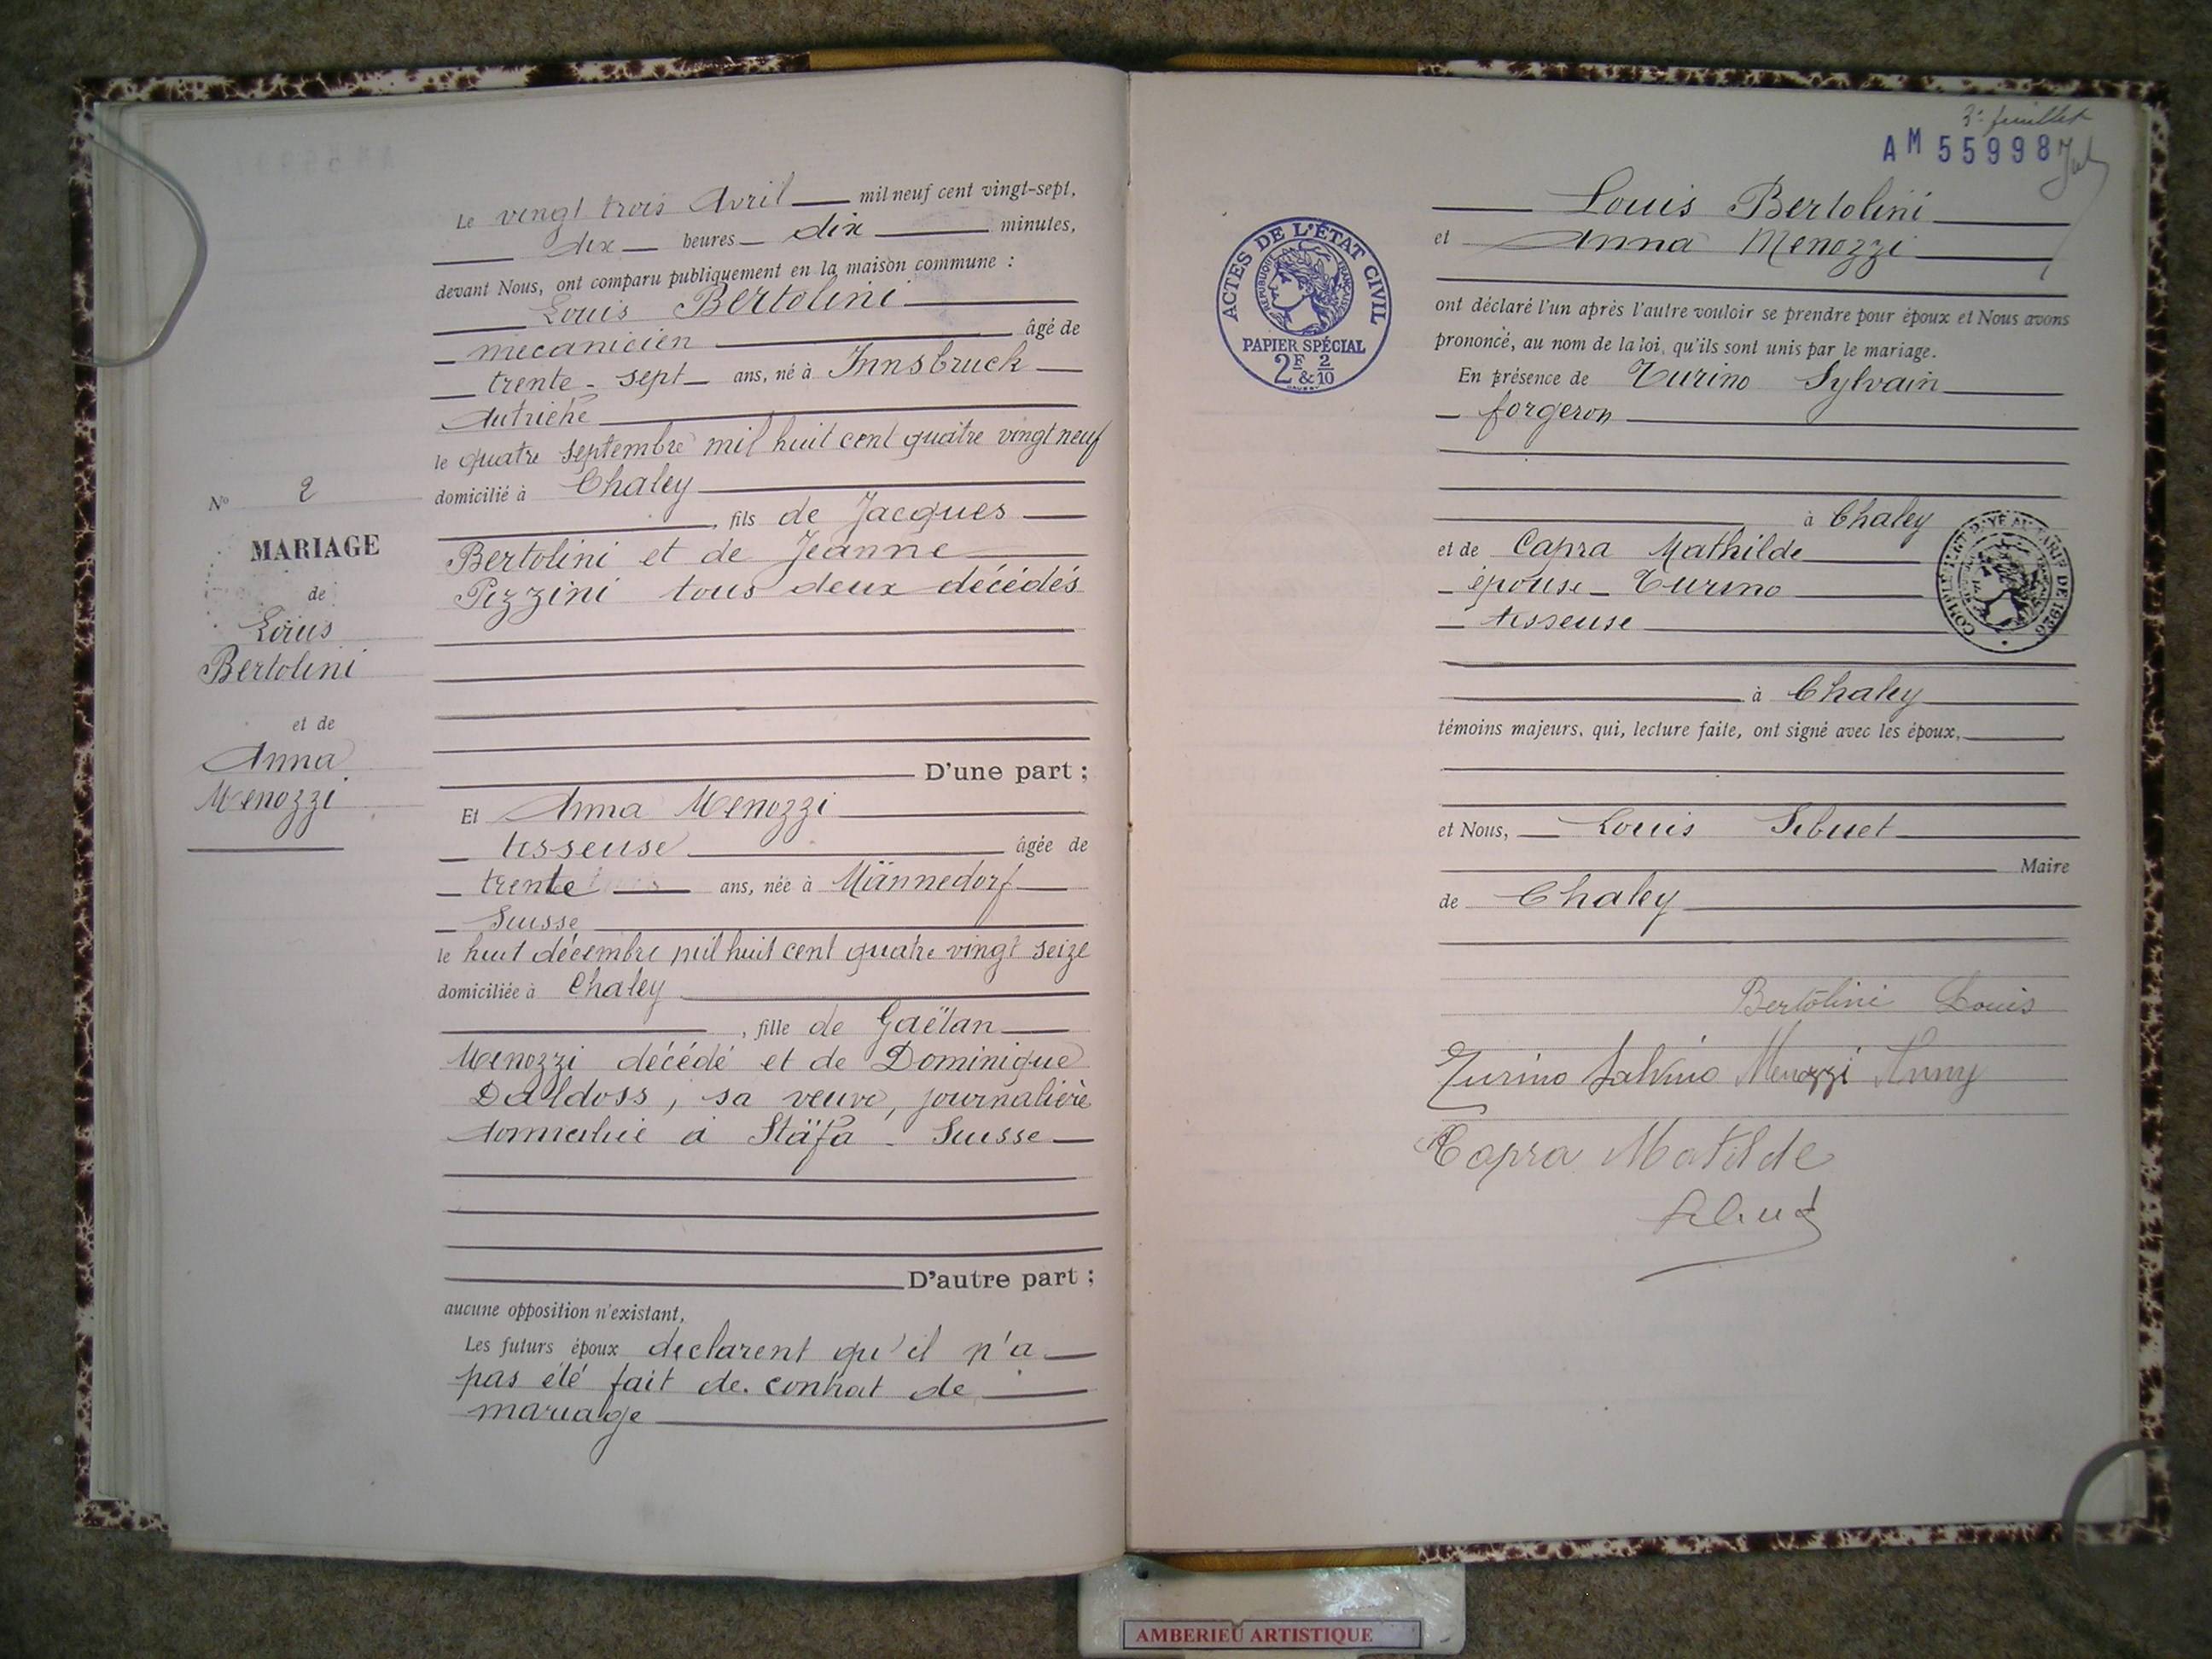 Le vingt trois Avril mil neuf cent vingt-sept,
dix heures dix minutes,
devant Nous, ont comparu publiquement en la maison commune :
Louis Bertolini
mécanicien âgé de
trente-sept ans, né à Innsbruck
Autriche
le quatre septembre mil huit cent quatre vingt neuf
domicilié à Chaley
, fils de Jacques
Bertolini et de Jeanne
Pizzini tous deux décédés
D'une part ;
Et Anna Menozzi
tisseuse âgée de
trente ans, née à Männedorf
Suisse
le huit décembre mil huit cent quatre vingt seize
domiciliée à Chaley
, fille de Gaëtan
Menozzi décédé et de Dominique
Daldoss, sa veuve, journalière
domiciliée à Stäfa - Suisse
D'autre part ;
aucune opposition n'existant,
Les futurs époux déclarent qu'il n'a
pas été fait de contrat de
mariage
No 2
MARIAGE
de
Louis
Bertolini
et de
Anna
Menozzi
3e feuillet
AM 55998
Louis Bertolini
et Anna Menozzi
ont déclaré l'un après l'autre vouloir se prendre pour époux et Nous avons
prononcé, au nom de la loi, qu'ils sont unis par le mariage.
En présence de Turino Sylvain
forgeron
à Chaley
et de Capra Mathilde
épouse Turino
tisseuse
à Chaley
témoins majeurs, qui, lecture faite, ont signé avec les époux,
et Nous, Louis Sibuet
Maire
de Chaley
Bertolini Louis
Turino Salvino Menozzi Anny
Capra Matilde
Sibuet
ACTES DE L'ÉTAT CIVIL
RÉPUBLIQUE FRANÇAISE
PAPIER SPÉCIAL
2F & 2/10
COMPLEMENT PAYÉ AU TARIF DE 1926
AMBERIEU ARTISTIQUE